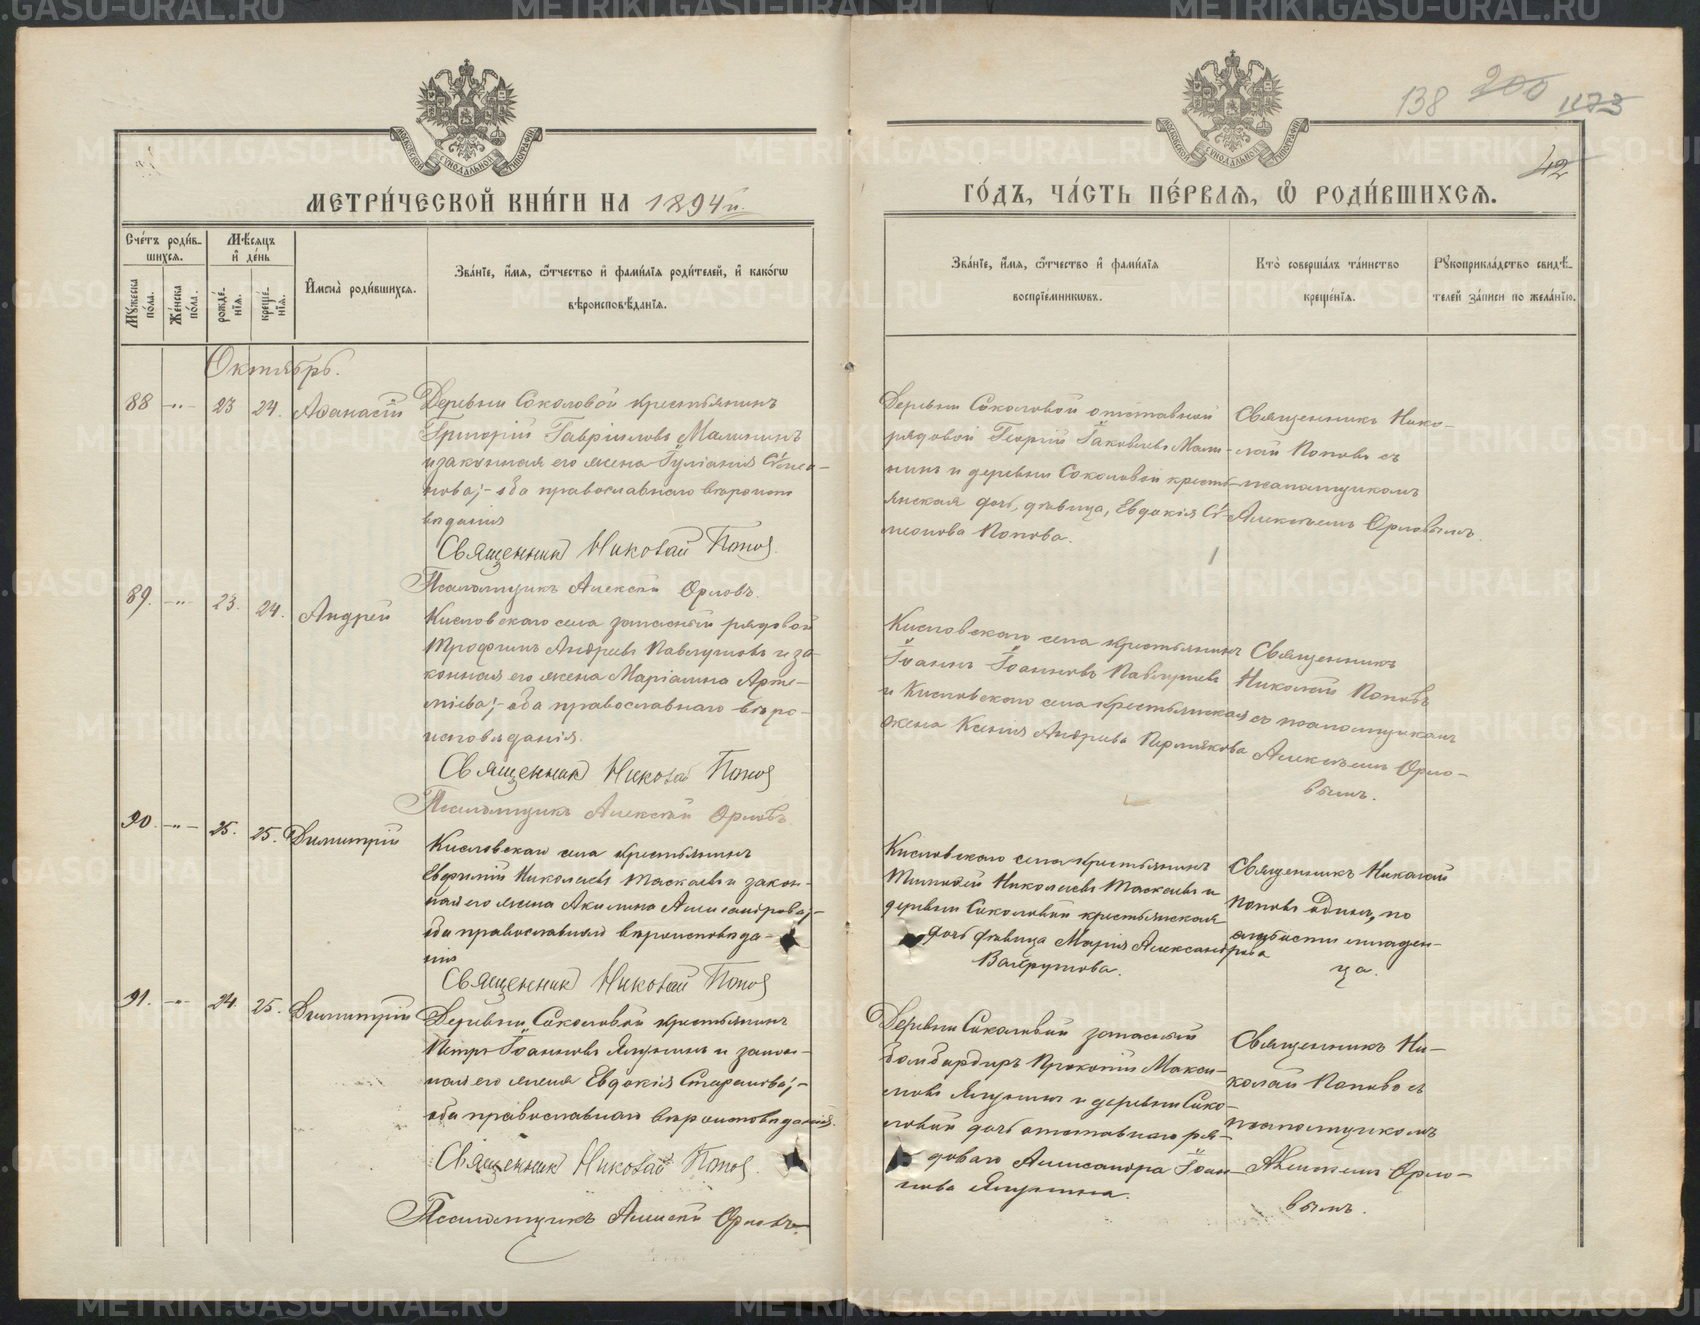 METRIKI.GASO-URAL.RU
138 200 1173
42
МОСКОВСКОЙ СѴНОДАЛЬНОЙ ТИПОГРАФІИ
МЕТРИ́ЧЕСКОЙ КНИ́ГИ НА 1894 й.
Сче́тъ роди́в-
шихся.
Мѣ́сяцъ
и҆ де́нь
Мꙋ́жеска
по́ла.
Же́нска
по́ла.
рожде́-
нїѧ.
креще́-
нїѧ.
И҆мена̀ роди́вшихсѧ.
Зва́нїе, и҆́мѧ, ѻ҆́тчество и҆ фами́лїѧ роди́телей, и҆ како́гѡ
вѣроисповѣ́данїѧ.
Октябрь.
88 -"- 23 24. Аѳанасій
Деревни Соколовой крестьянинъ
Григорій Гавріиловъ Малининъ
и законная его жена Іуліанія Сѵмео-
нова; - оба православнаго вѣроиспо
вѣданія
Священник Николай Попов.
Псаломщикъ Алексѣй Орловъ.
89. -"- 23. 24. Андрей
Кисловскаго села запасный рядовой
Трофимъ Андреевъ Павлушевъ и за-
конная его жена Маріамна Арте-
міева; - оба православнаго вѣро-
исповѣданія.
Священник Николай Попов
Псаломщикъ Алексѣй Орловъ.
90. -"- 25. 25. Димитрій
Кисловскаго села крестьянинъ
Евфимій Николаевъ Таскаевъ и закон-
ная его жена Акилина Александрова; -
оба православнаго вѣроисповѣда-
нія
Священник Николай Попов
91. -"- 24. 25. Димитрій
Деревни Соколовой крестьянинъ
Петръ Іоанновъ Ялунинъ и закон-
ная его жена Евдокія Стефанова; -
оба православнаго вѣроисповѣданія.
Священник Николай Попов.
Псаломщикъ Алексѣй Орловъ.
МОСКОВСКОЙ СѴНОДАЛЬНОЙ ТИПОГРАФІИ
ГО́ДЪ, ЧА́СТЬ ПЕ́РВАѦ, Ѽ РОДИ́ВШИХСѦ.
Зва́нїе, и҆́мѧ, ѻ҆́тчество и҆ фами́лїѧ
воспрїе́мникѡвъ.
Кто̀ соверша́лъ та́инство
креще́нїѧ.
Рꙋкоприкла́дство свидѣ́-
телей за́писи по жела́нїю.
Деревни Соколовой отставной
рядовой Георгій Іаковлевъ Мали-
нинъ и деревни Соколовой кресть-
янская дочь, дѣвица, Евдокія Сѵ-
меонова Попова.
Священникъ Нико-
лай Поповъ съ
псаломщикомъ
Алексѣемъ Орловымъ.
Кисловскаго села крестьянинъ
Іоаннъ Іоанновъ Павлушевъ
и Кисловскаго села крестьянская
жена Ксенія Андреева Пермякова
Священникъ
Николай Поповъ
съ псаломщикомъ
Алексѣемъ Орло-
вымъ.
Кисловскаго села крестьянинъ
Тимоѳей Николаевъ Таскаевъ и
деревни Соколовой крестьянская
дочь дѣвица Марія Александрова
Вахрушова.
Священникъ Николай
Поповъ одинъ, по
слабости младен-
ца.
Деревни Соколовой запасный
бомбардиръ Прокопій Макси-
мовъ Ялунинъ и деревни Соко-
ловой дочь отставнаго ря-
доваго Александра Іоан-
нова Ялунина.
Священникъ Ни-
колай Поповъ съ
псаломщикомъ
Алексѣемъ Орло-
вымъ.